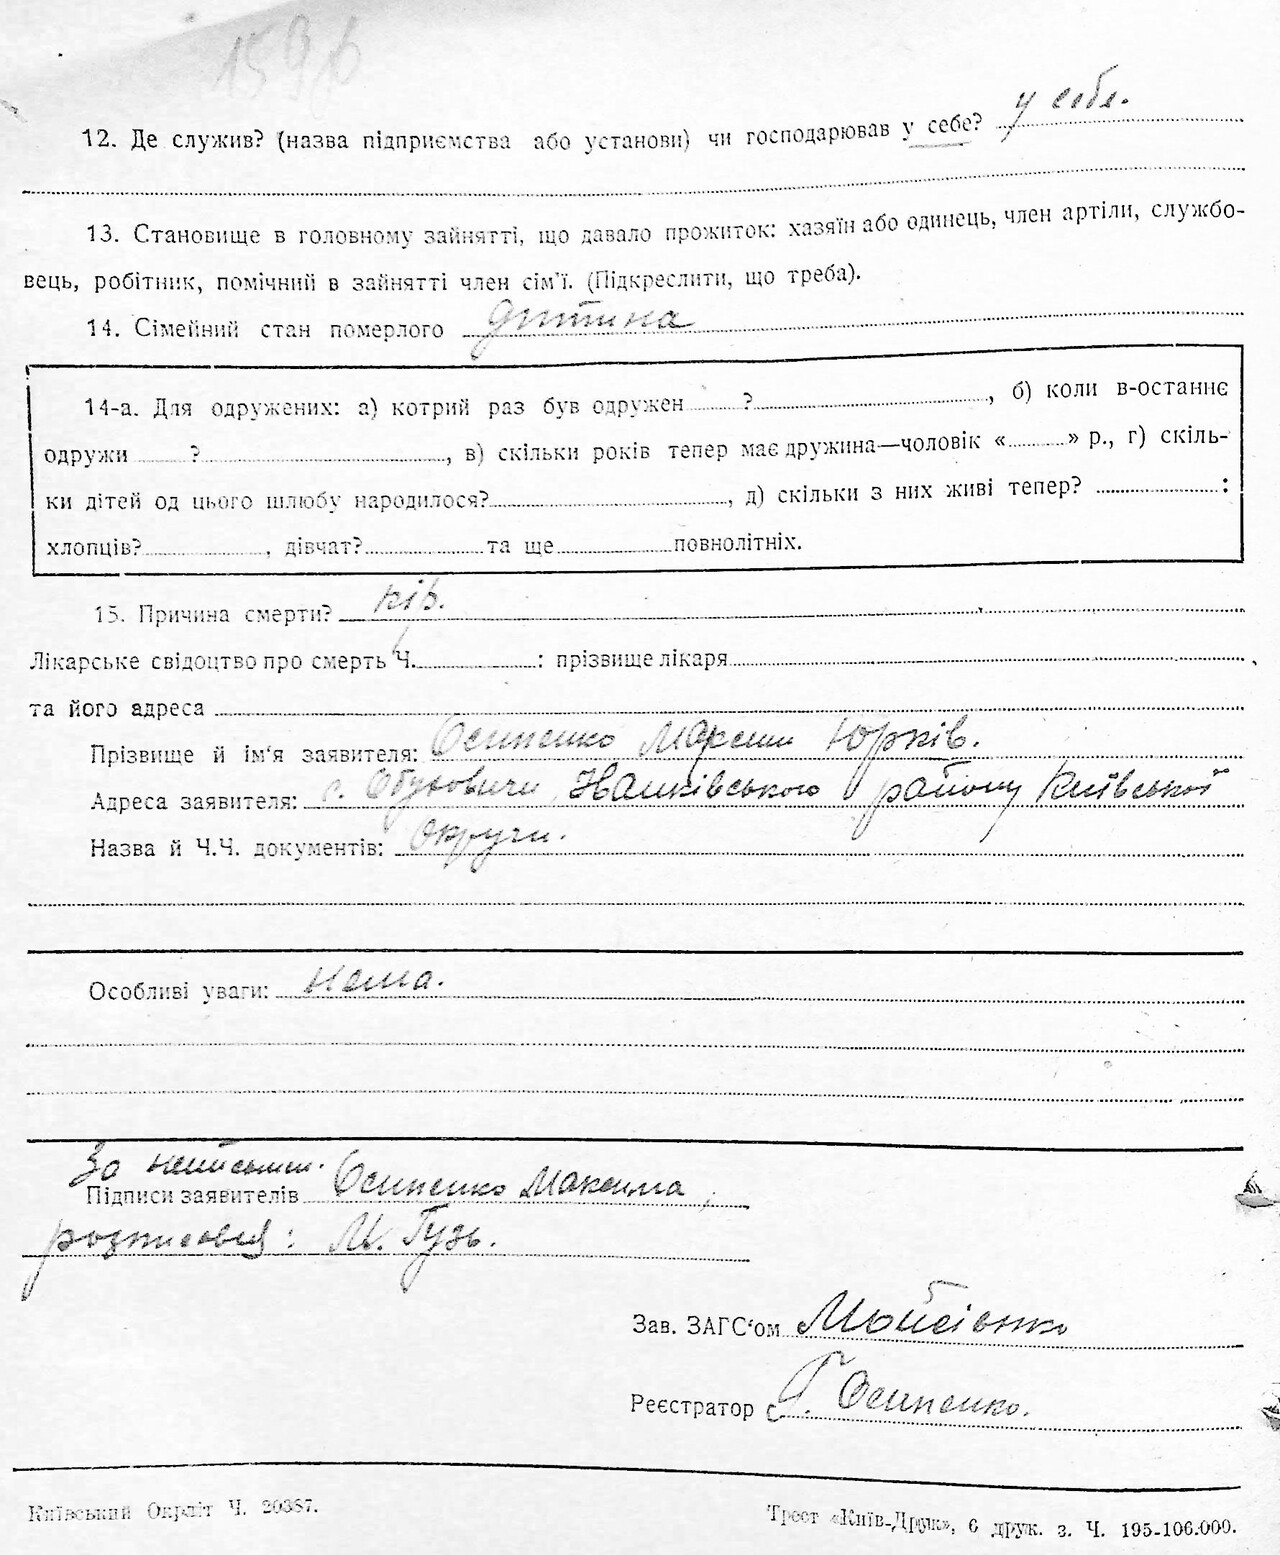 159
12. Де служив? (назва підприємства або установи) чи господарював у себе? у себе.
13. Становище в головному зайнятті, що давало прожиток: хазяїн або одинець, член артіли, службо-
вець, робітник, помічний в зайнятті член сім'ї. (Підкреслити, що треба).
14. Сімейний стан померлого дитина
14-а. Для одружених: а) котрий раз був одружен ? , б) коли в-останнє
одружи ? , в) скільки років тепер має дружина—чоловік « » р., г) скіль-
ки дітей од цього шлюбу народилося? , д) скільки з них живі тепер? :
хлопців? , дівчат? та ще повнолітніх.
15. Причина смерти? кір.
Лікарське свідоцтво про смерть Ч. : прізвище лікаря
та його адреса
Прізвище й ім'я заявителя: Осипенко Максим Юрків.
Адреса заявителя: с. Обуховичи, Іванківського району Київської
Назва й Ч.Ч. документів: Округи.
Особливі уваги: нема.
За неписьмен.
Підписи заявителів Осипенко Максима,
розписовця: М. Гузь.
Зав. ЗАГС'ом Мойсієнко
Реєстратор Г. Осипенко.
Київський Окрліт Ч. 20387.
Трест «Київ-Друк», 6 друк. з. Ч. 195-106.000.